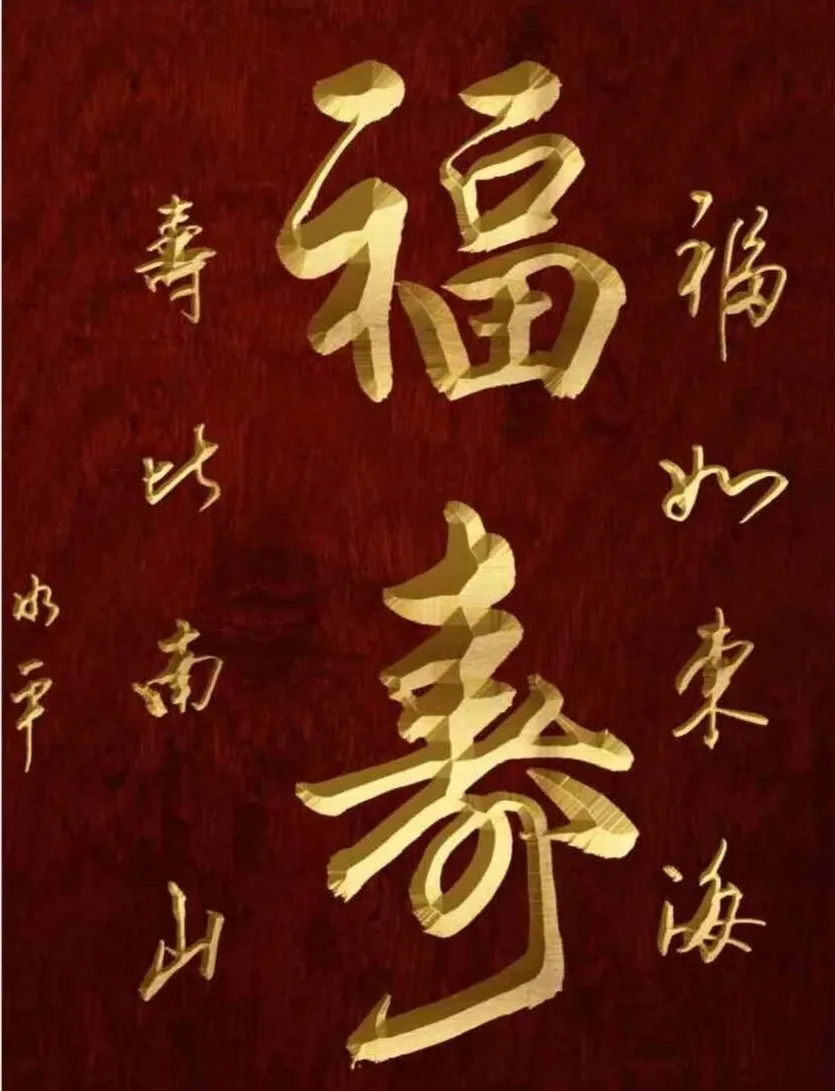 福如东海
福寿
壽比南山
水平